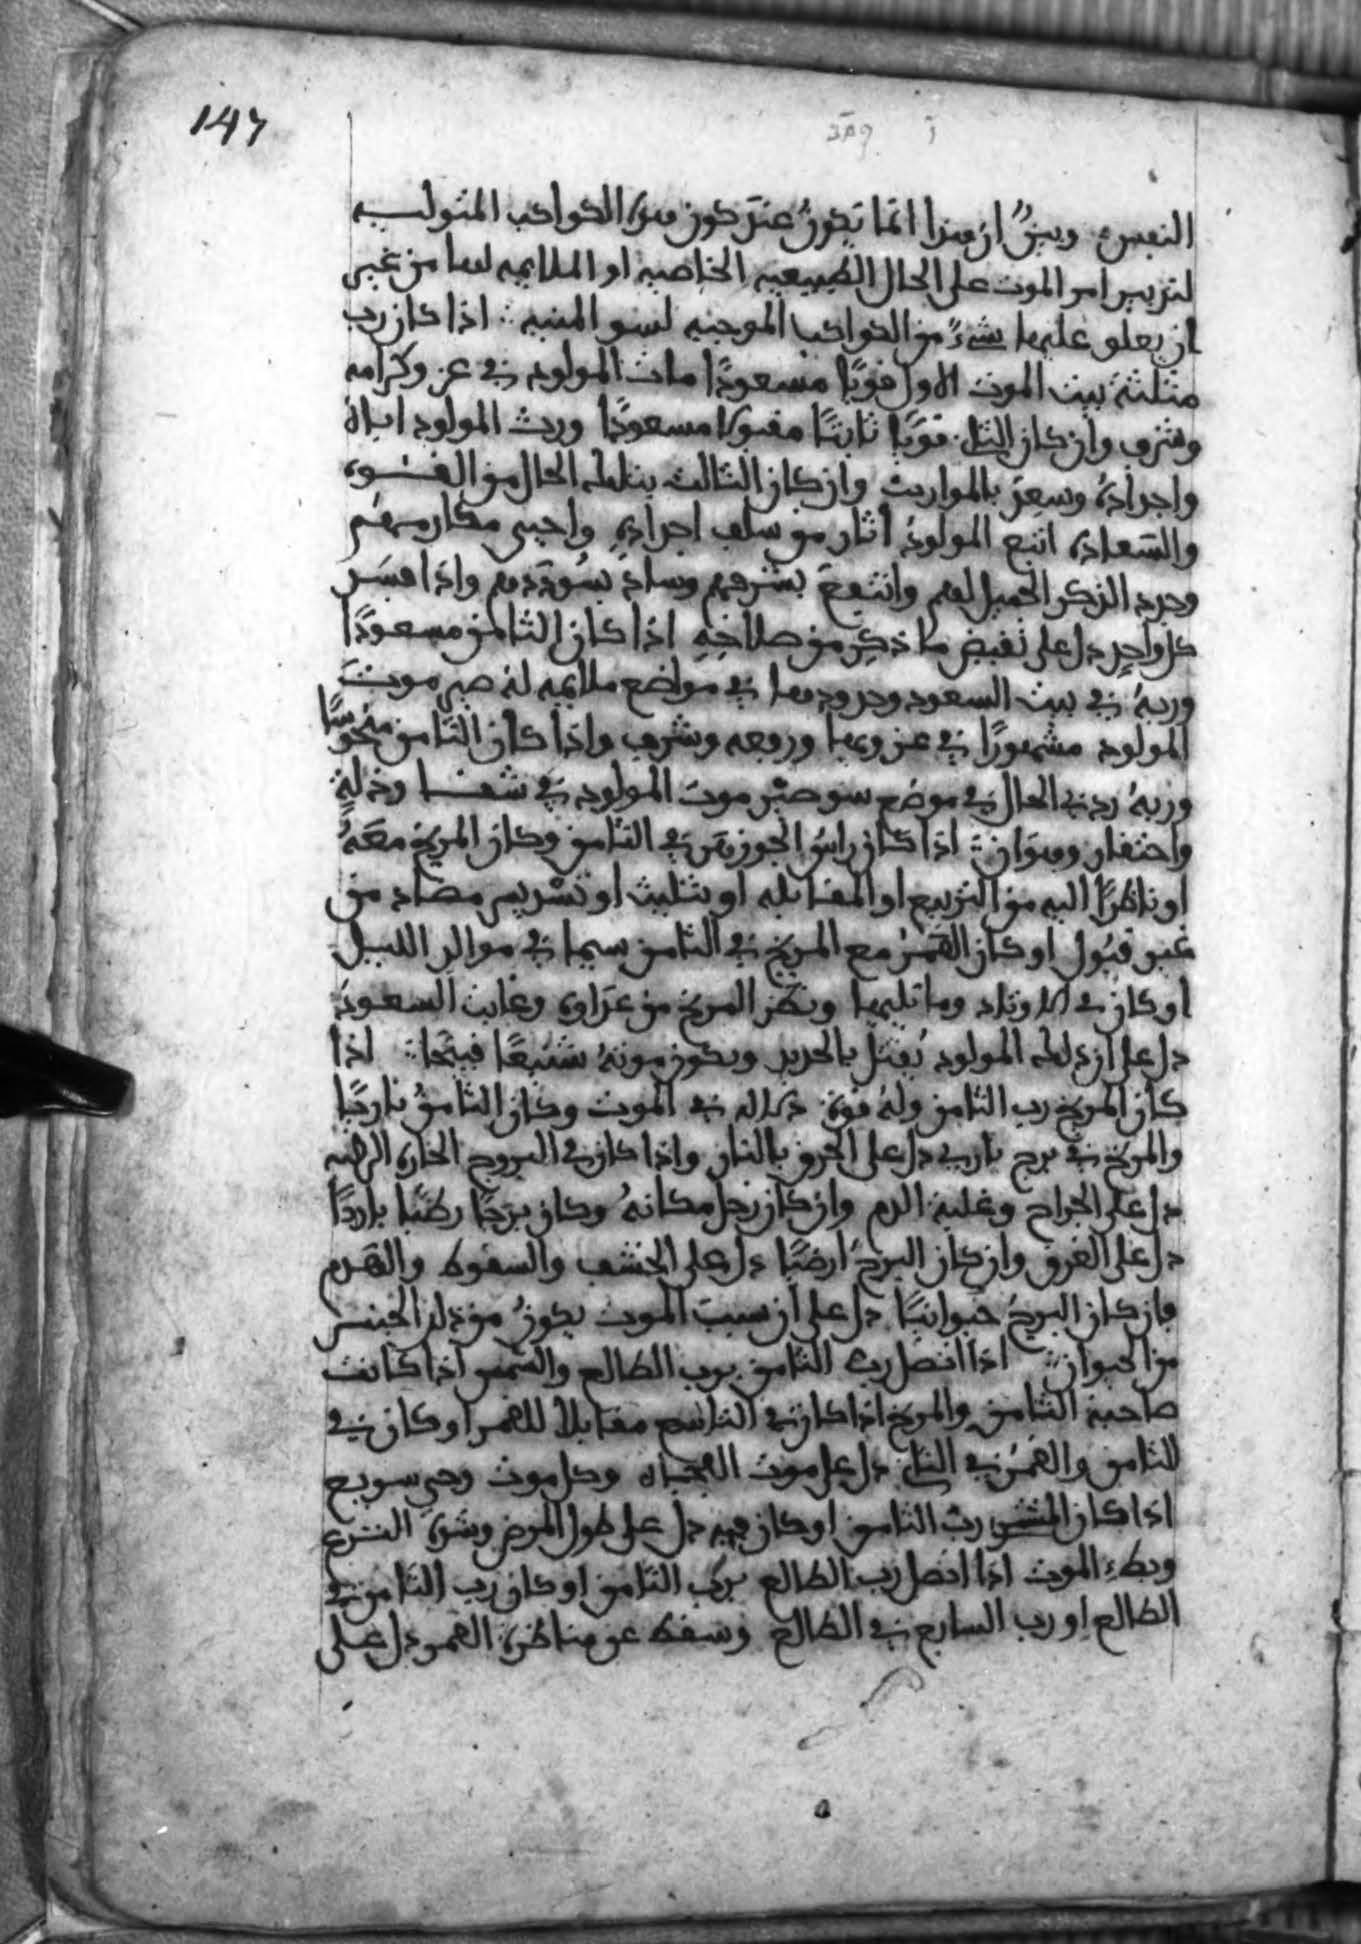 147
النفس وبيّن ان هذا انما يكون عند كون هذه الكواكب المتوليه
لتدبير امر الموت على الحال الطبيعيه الخاصيه او الملايمه لها من غير
ان يعلو عليها شيء من الكواكب الموجبه لسو المنيه اذا كان رب
مثلثة بيت الموت الاول قويا مسعودا مات المولود في عز وكرامه
وشرف وان كان الثاني قويا ثابتا مقبولا مسعودا ورث المولود اباه
واجداده وسعد بالمواريث وان كان الثالث بتلك الحال من القوه
والسعاده اتبع المولود اثار من سلف اجداده واحيى مكارمهم
وجدد الذكر الجميل لهم وانتفع بشرفهم وساد بسؤددهم واذا فسد
كل واحد دل على نقيض ما ذكر من صلاحه اذا كان الثامن مسعودا
وربه في بيت السعود وحدودها في مواضع ملايمه له صير موت
المولود مشهورا في عز وبها ورفعه وشرف واذا كان الثامن منحوسا
وربه ردي الحال في موضع سو صير موت المولود في شقا وذلة
واحتقار وهوان اذا كان راس الجوزهر في الثامن وكان المريخ معه
او ناظرا اليه من التربيع او المقابله او تثليث او تسديس مضاد من
غير قبول او كان القمر مع المريخ في الثامن سيما في مواليد الليل
او كان في الاوتاد وما يليها ونظر المريخ من عداوه وغابت السعود
دل على ان ذلك المولود يقتل بالحديد ويكون موته شنيعا قبيحا اذا
كان المريخ رب الثامن وله قوة دلاله في الموت وكان الثامن ناريا
والمريخ في برج ناري دل على الحرق بالنار واذا كان في البروج الحاره الرطبه
دل على الجراح وغلبة الدم وان كان زحل مكانه وكان برجا رطبا باردا
دل على الغرق وان كان البرج ارضيا دل على الخسف والسقوط والهدم
فان كان البرج حيوانيا دل على ان سبب الموت يكون من ذلك الجنس
من الحيوان اذا اتصل رب الثامن برب الطالع والشمس اذا كانت
صاحبة الثامن والمريخ اذا كان في التاسع مقابلا للقمر او كان في
الثامن والقمر في الثاني دل على موت الفجاه وكل موت وحي سريع
اذا كان المشتري رب الثامن او كان فيه دل على طول المرض وشده النزع
وبطء الموت اذا اتصل رب الطالع برب الثامن او كان رب الثامن في
الطالع او رب السابع في الطالع وسقط عن مناظرة القمر دل على